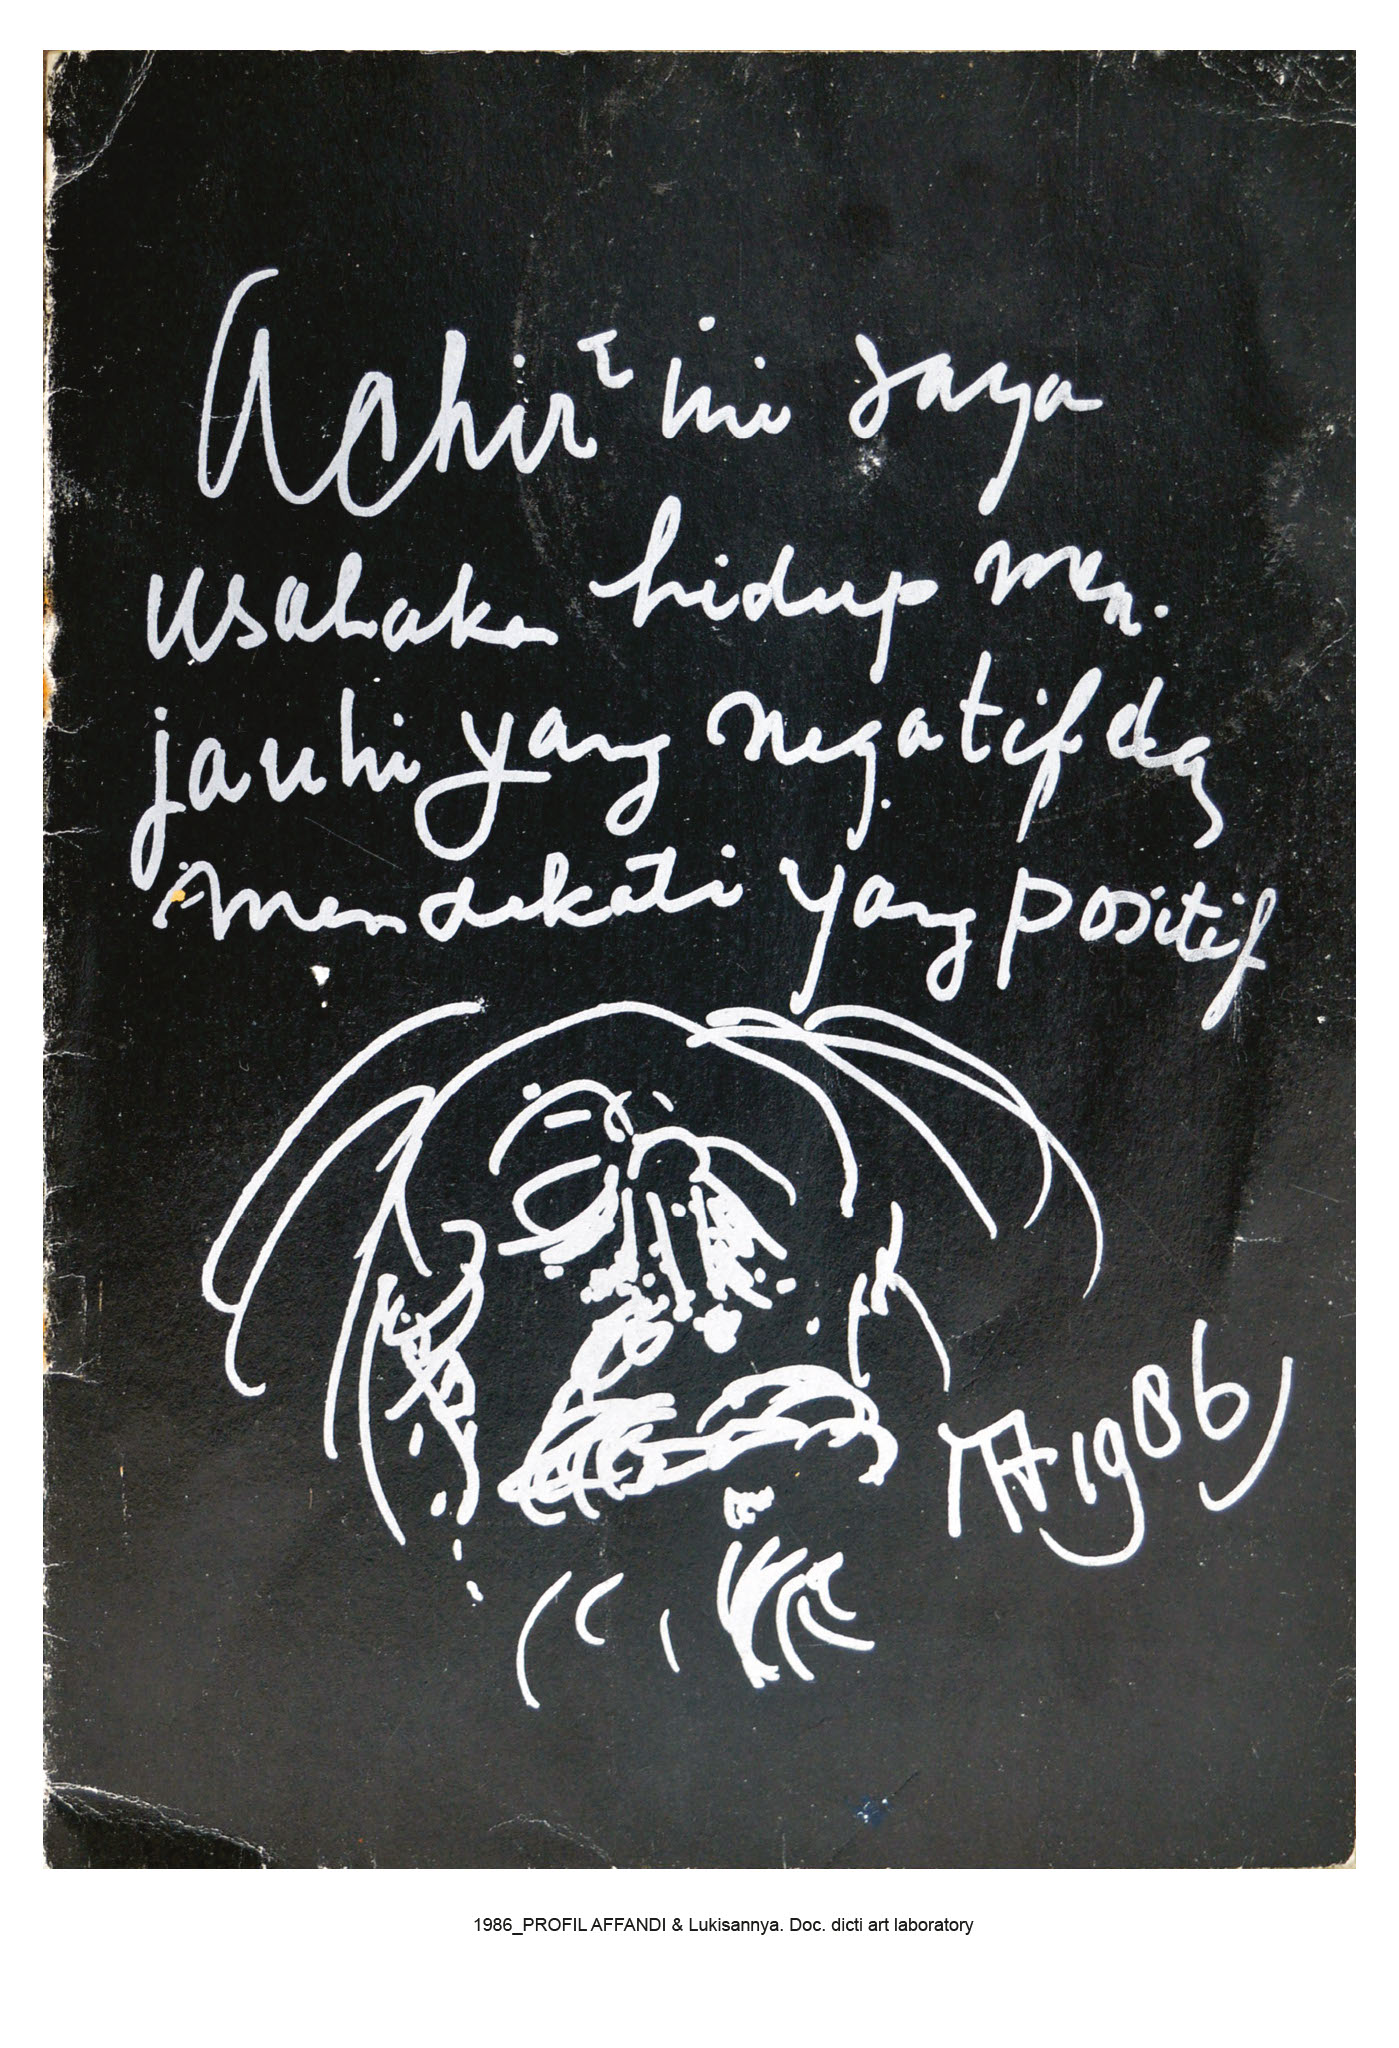 Achir² ini saya
usahaka hidup men.
jauhi yang negatif dg
mendekati yang positif
1986
1986_PROFIL AFFANDI & Lukisannya. Doc. dicti art laboratory